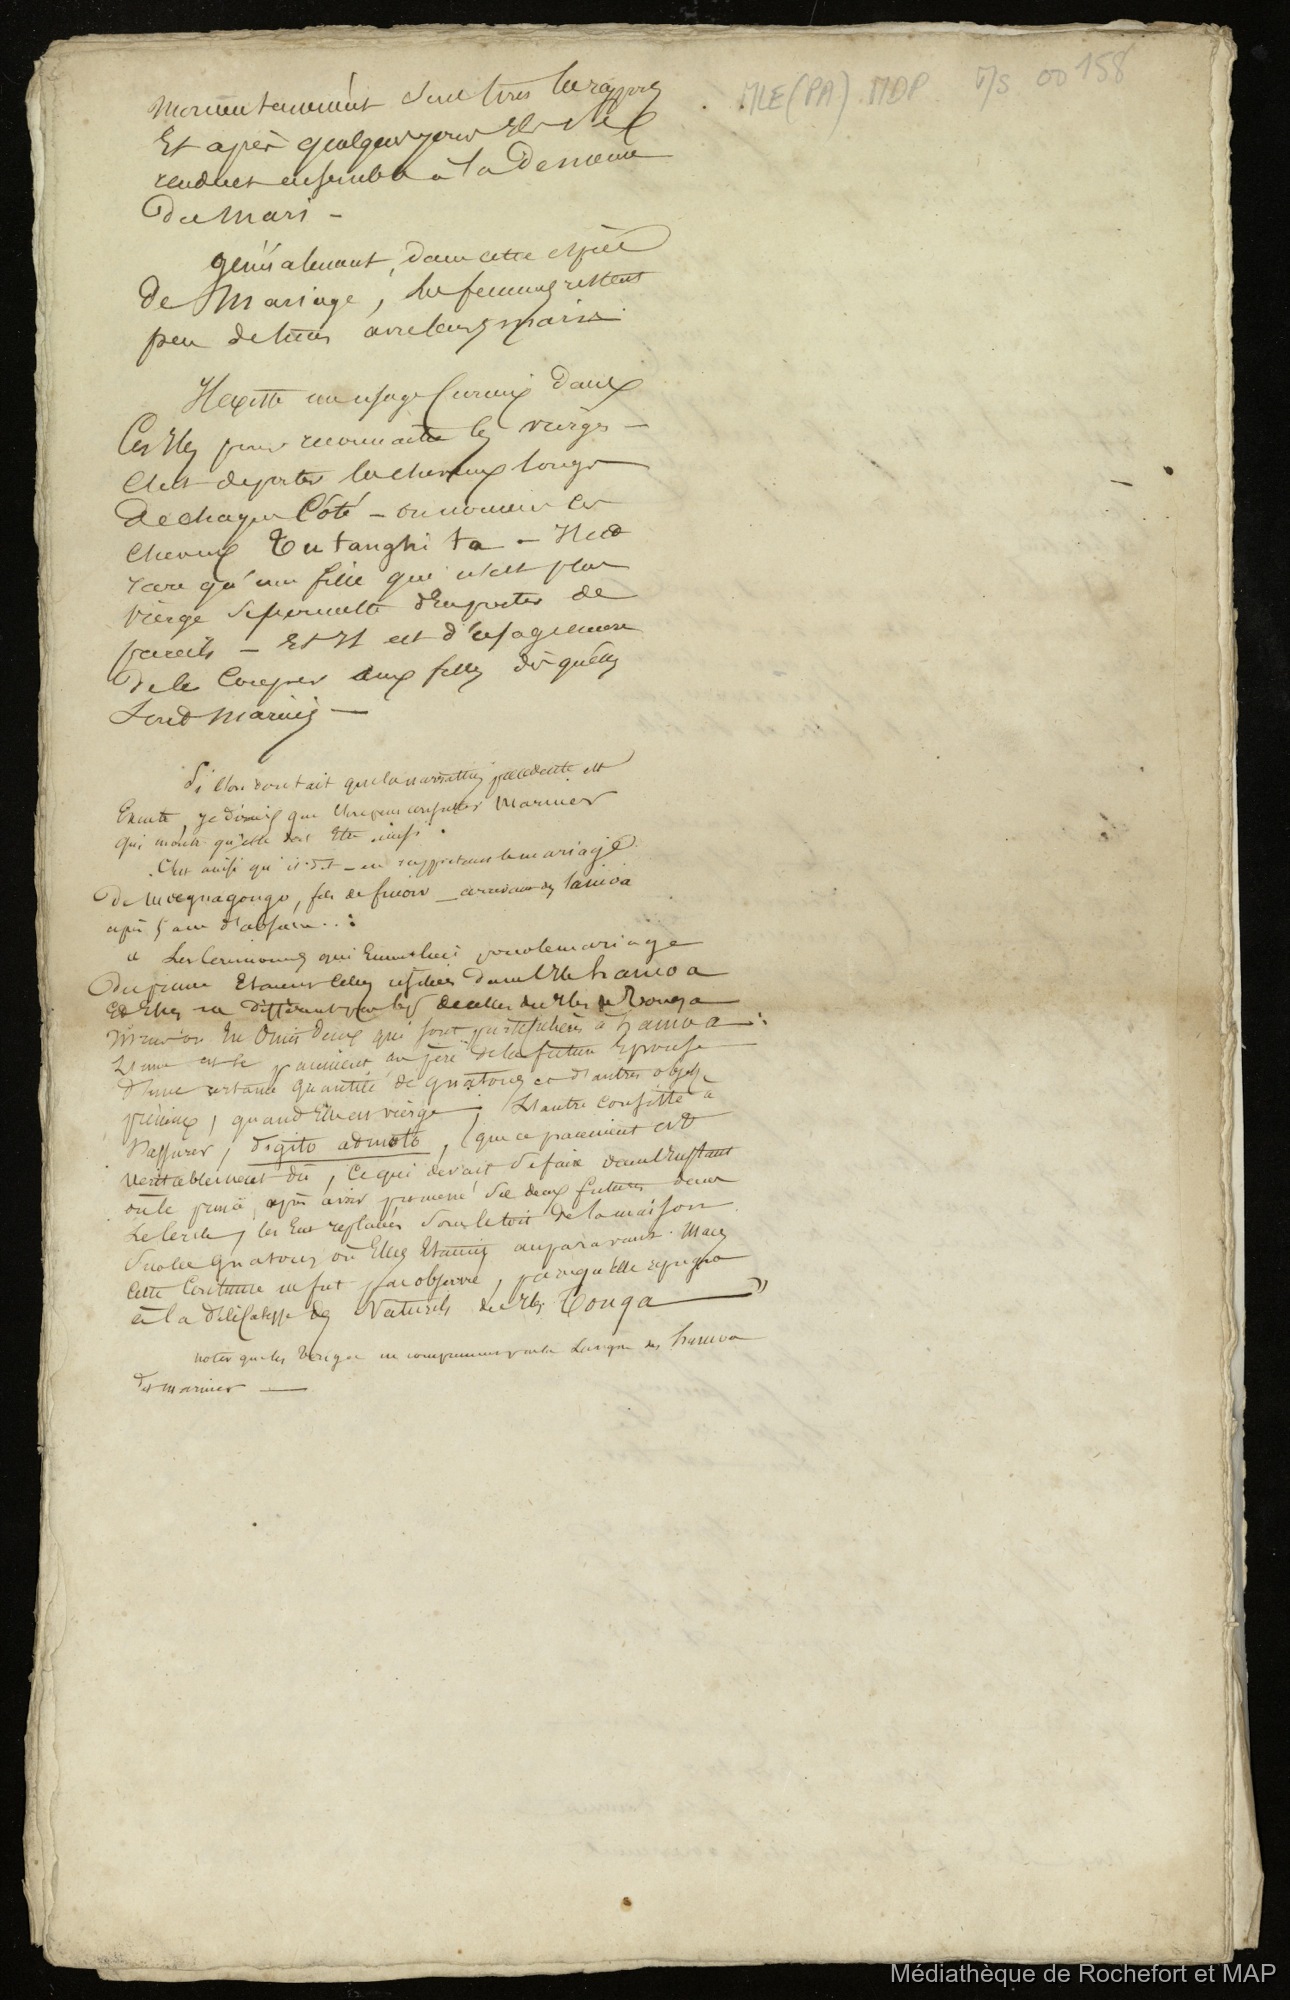 MLE (PA) MDP M/S 00158
momentanement
Et après quelques jours
rendues ensemble à la Demeure
Du Mari -
généralement, dans cette espèce
De Mariage, les femmes restent
peu de tems avec leurs maris.
Il existe un usage curieux dans
Ces Iles pour reconnaitre les vierges -
C'est de porter les cheveux longs
De chaque Côté - on nomme ces
Cheveux Tu tanghi ta - Il est
rare qu'une fille qui n'est plus
Vierge se permette d'En porter de
pareils - Et Il est d'usage encore
De les Couper aux filles dès qu'elles
Sont Mariées —
Si l'on doutait que la narration precedente est
Exacte, je dirais que l'on peut consulter Mariner
qui montre qu'elle doit Etre ainsi.
C'est ainsi qu'il dit - en rapportant le mariage
De Moegnagongo, fils de finow - arrivant des hamoa
après 5 ans d'absence...:
« Les Cérémonies qui Eurent lieu pour le mariage
Du prince Etaient Celles usitées dans l'Ile hamoa
Et Elles ne différent pas de celles des Iles de Tonga
On En Omit Deux qui sont particulières à hamoa:
L'une est le paiement au père de la future Epouse
D'une certaine quantité de gnatous et d'autres objets
précieux, quand Elle est vierge; L'autre consiste à
s'assurer, digito admoto, que ce paiement est
véritablement dû, Ce qui devait se faire dans l'Instant
où le après avoir promené les deux futures dans
Le Cercle, les Eut replacées sous le toit de la maison
sur les gnatous où Elles Etaient auparavant. Mais
Cette Coutume ne fut pas observée, parcequ'Elle repugne
à la Délicatesse des Naturels des Iles Tonga »
noter que les Tonga ne comprennent pas la Langue des hamoa
dit mariner —
Médiathèque de Rochefort et MAP